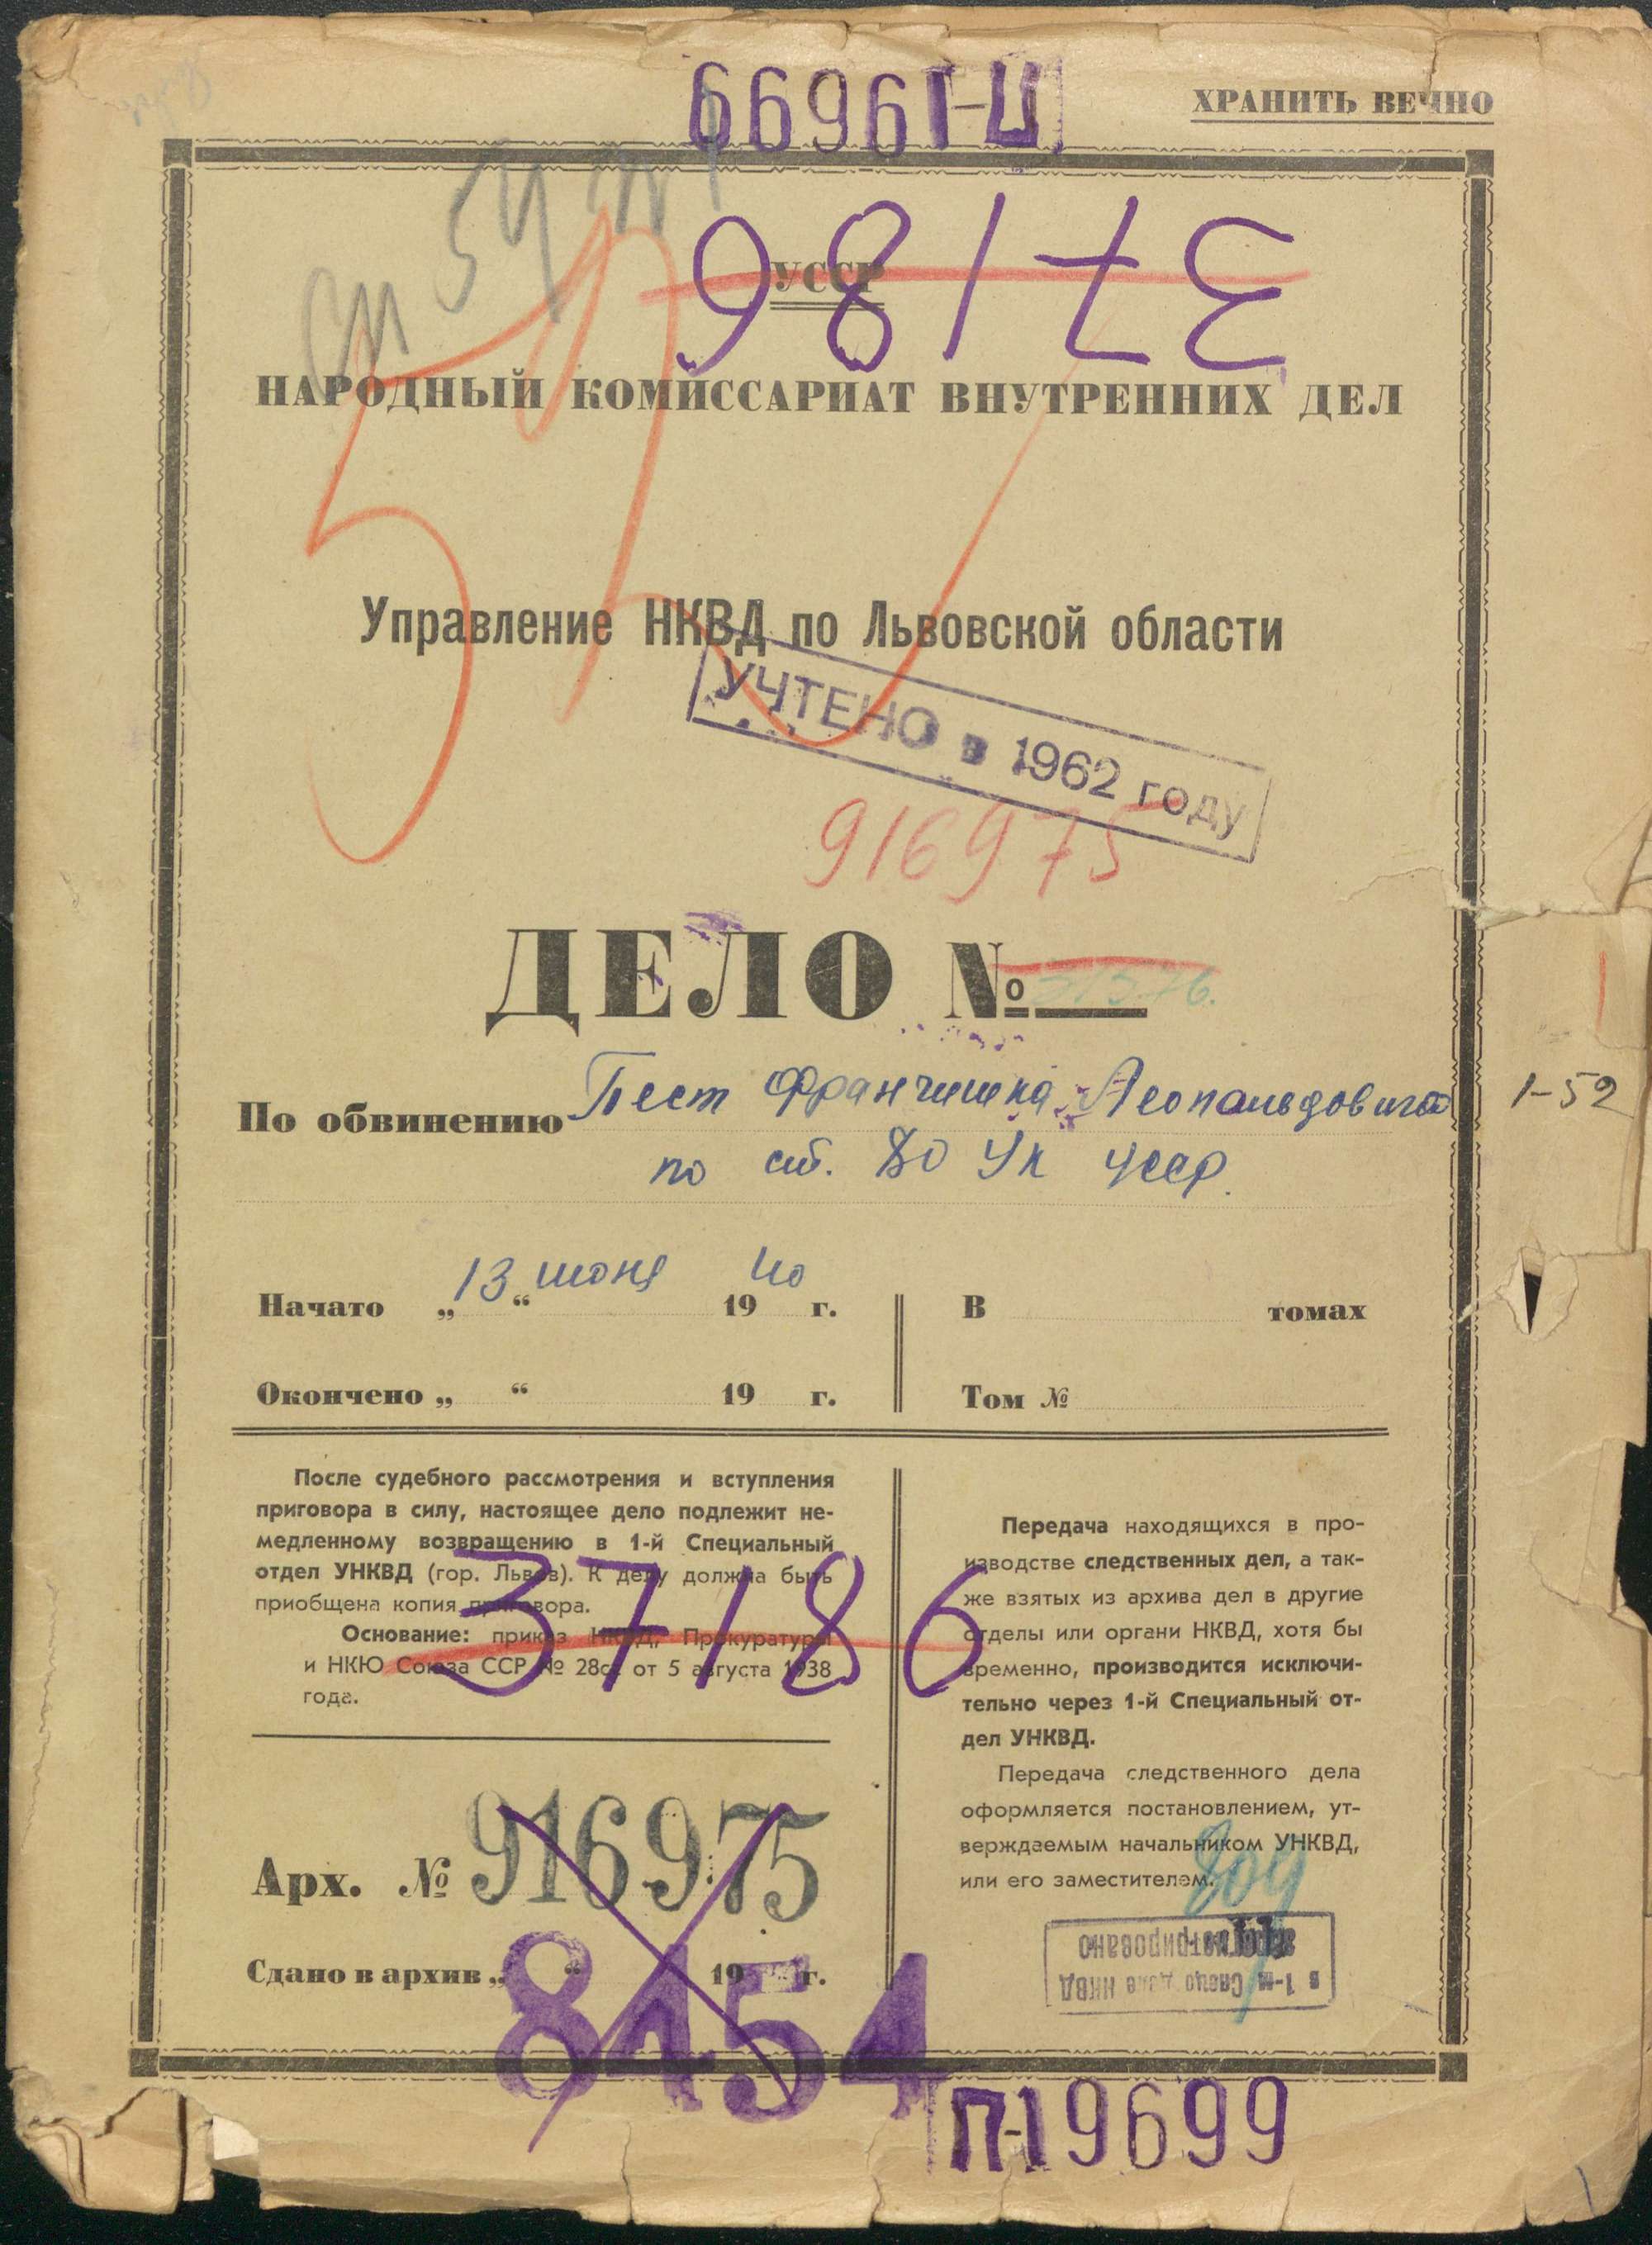 П-19699
ХРАНИТЬ ВЕЧНО
см
37186
УССР
НАРОДНЫЙ КОМИССАРИАТ ВНУТРЕННИХ ДЕЛ
Управление НКВД по Львовской области
УЧТЕНО в 1962 году
916975
ДЕЛО №
По обвинению Бест Францишка Леопольдовича
1-52
по ст. 80 УК УССР.
Начато „13“ июня 1940 г.
В томах
Окончено „ “ 19 г.
Том №
После судебного рассмотрения и вступления
приговора в силу, настоящее дело подлежит не-
медленному возвращению в 1-й Специальный
отдел УНКВД (гор. Львов). К делу должна быть
приобщена копия приговора.
Основание: приказ НКВД, Прокуратуры
и НКЮ Союза ССР № 28сс от 5 августа 1938
года.
37186
Передача находящихся в про-
изводстве следственных дел, а так-
же взятых из архива дел в другие
отделы или органи НКВД, хотя бы
временно, производится исключи-
тельно через 1-й Специальный от-
дел УНКВД.
Передача следственного дела
оформляется постановлением, ут-
верждаемым начальником УНКВД,
или его заместителем.
809
Арх. № 916975
Сдано в архив „ “ 19 г.
8454
в 1-м Спецотделе НКВД
П-19699